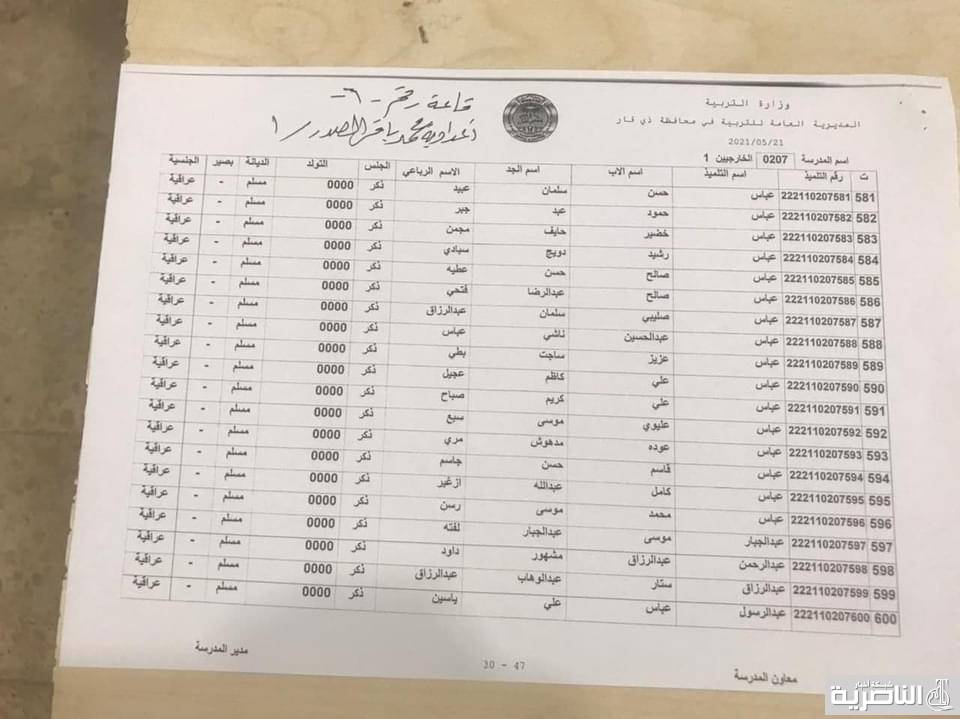 قاعة رقم - ٦ -
اعدادية محمد باقر الصدر / ١
وزارة التربية
المديرية العامة للتربية في محافظة ذي قار
2021/05/21
اسم المدرسة 0207 الخارجيين 1
ت رقم التلميذ اسم التلميذ اسم الاب اسم الجد الاسم الرباعي الجنس التولد الديانة بصير الجنسية
581 222110207581 عباس حسن سلمان عبيد ذكر 0000 مسلم - عراقية
582 222110207582 عباس حمود عبد جبر ذكر 0000 مسلم - عراقية
583 222110207583 عباس خضير حايف مجمن ذكر 0000 مسلم - عراقية
584 222110207584 عباس رشيد دويج سبادي ذكر 0000 مسلم - عراقية
585 222110207585 عباس صالح حسن عطيه ذكر 0000 مسلم - عراقية
586 222110207586 عباس صالح عبدالرضا فتحي ذكر 0000 مسلم - عراقية
587 222110207587 عباس صليبي سلمان عبدالرزاق ذكر 0000 مسلم - عراقية
588 222110207588 عباس عبدالحسين ناشي عباس ذكر 0000 مسلم - عراقية
589 222110207589 عباس عزيز ساجت بطي ذكر 0000 مسلم - عراقية
590 222110207590 عباس علي كاظم عجيل ذكر 0000 مسلم - عراقية
591 222110207591 عباس علي كريم صباح ذكر 0000 مسلم - عراقية
592 222110207592 عباس عليوي موسى سبع ذكر 0000 مسلم - عراقية
593 222110207593 عباس عوده مدهوش مري ذكر 0000 مسلم - عراقية
594 222110207594 عباس قاسم حسن جاسم ذكر 0000 مسلم - عراقية
595 222110207595 عباس كامل عبدالله ازغير ذكر 0000 مسلم - عراقية
596 222110207596 عباس محمد موسى رسن ذكر 0000 مسلم - عراقية
597 222110207597 عبدالجبار موسى عبدالجبار لفته ذكر 0000 مسلم - عراقية
598 222110207598 عبدالرحمن عبدالرزاق مشهور داود ذكر 0000 مسلم - عراقية
599 222110207599 عبدالرزاق ستار عبدالوهاب عبدالرزاق ذكر 0000 مسلم - عراقية
600 222110207600 عبدالرسول عباس علي ياسين ذكر 0000 مسلم - عراقية
معاون المدرسة
30 - 47
مدير المدرسة
شبكة اخبار
الناصرية